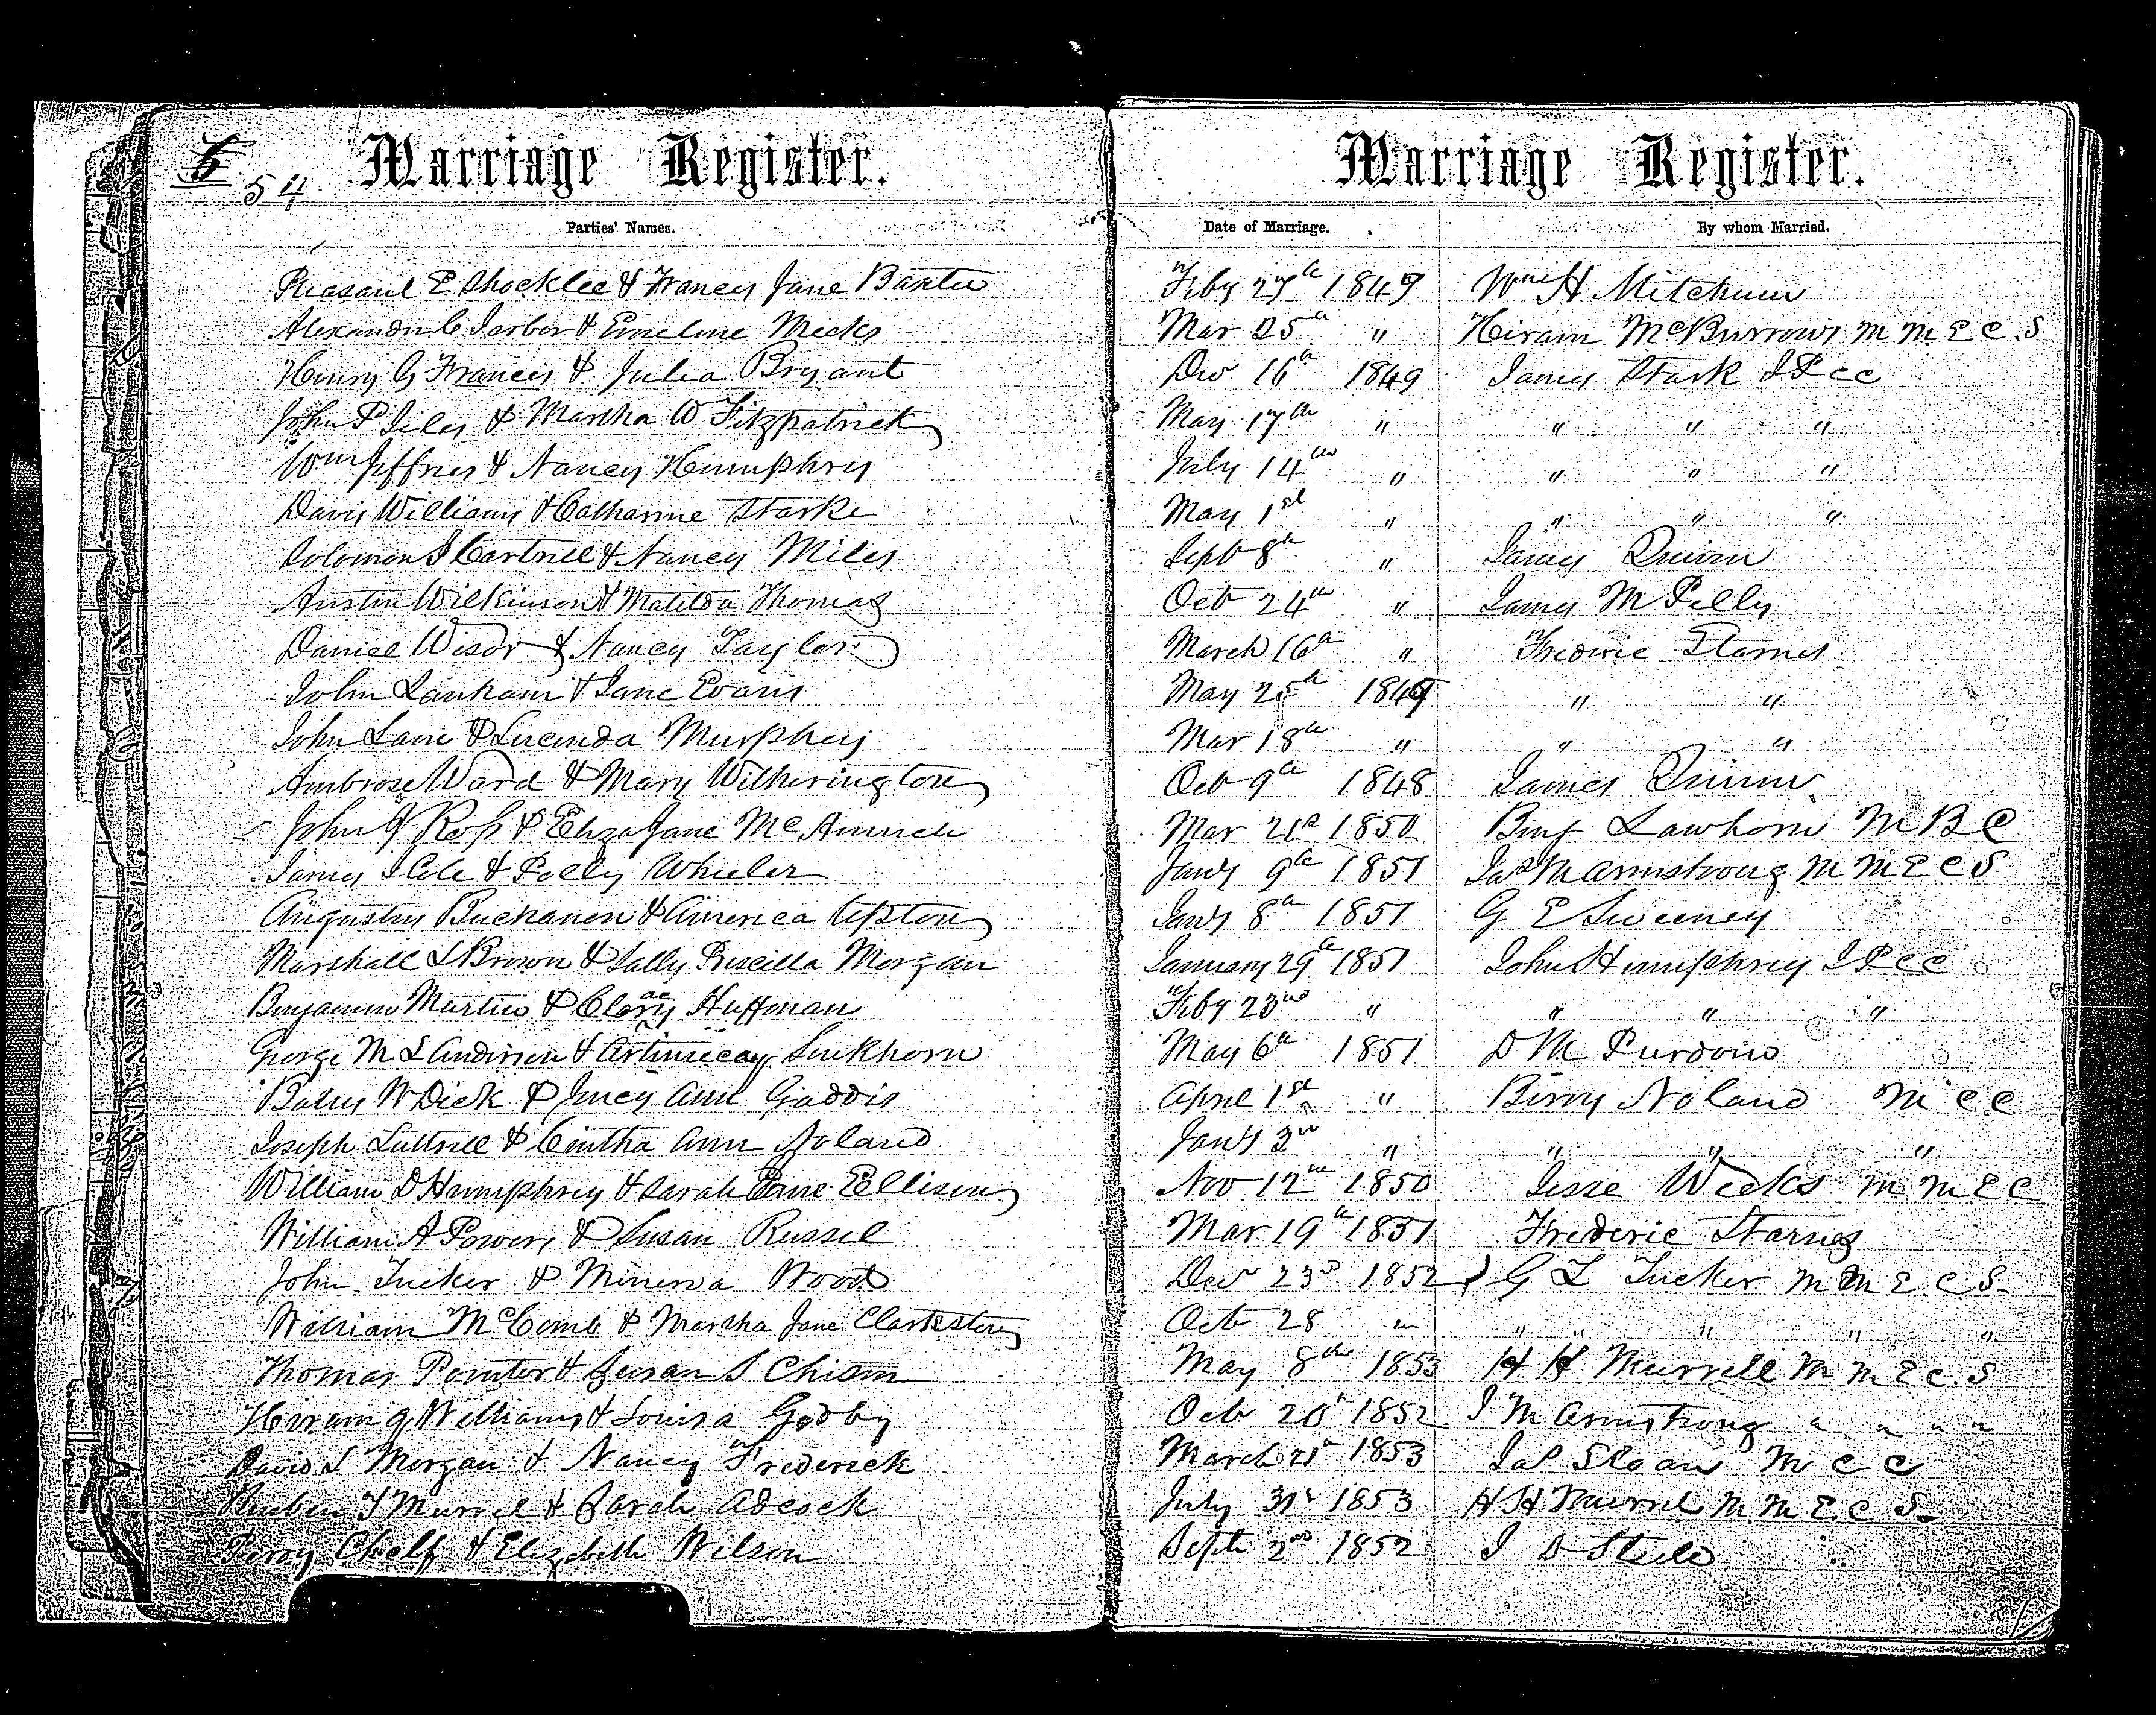 5
54
Marriage Register. Marriage Register.
Parties' Names. Date of Marriage. By whom Married.
Pleasant E Shocklee & Frances Jane Baxter Feby 27th 1849 Wm H Mitchum
Alexander C Tarbor & Emeline Meeks Mar 25th " Hiram McBurrows M M E C. S
Henry G Francis & Julia Bryant Dec 16th 1849 James Stark J P C C
John P Jiles & Martha W Fitzpatrick May 17th " " " "
Wm Jeffries & Nancy Humphry July 14th " " " "
Davis Williams & Catharine Starke May 1st " " " "
Solomon J Cartrell & Nancy Miles Sept 8th " James Quinn
Austin Wilkinson & Matilda Thomas Oct 24th " James M Pelly
Daniel Wisdr & Nancy Taylor March 16th " Frederic Starnes
John Lanham & Jane Evans May 25th 1849 " "
John Lane & Lucinda Murphey Mar 18th " " "
Ambrose Ward & Mary Witherington Oct 9th 1848 James Quinn
John J Ross & Eliza Jane McAninch Mar 21st 1850 Benj Lawhorn M B C
James J Cole & Polly Wheeler Jany 9th 1851 Jas M Armstrong M M E C S
Augustus Buchanen & America Upton Jany 8th 1851 G E Sweeney
Marshall L Brown & Sally Priscilla Morgan January 29th 1851 John Humphrey J P C C
Benjamin Martin & Clary Huffman Feby 23rd " " " "
George M L Anderson & Linkhorn May 6th 1851 D M Purdom
Bailey W Dick & Juicy Ann Gaddis April 1st " Berry Noland M C C
Joseph Luttrell & Cintha Ann Noland Jany 3rd " " " "
William D Humphrey & Sarah Jane Ellison Nov 12th 1850 Jesse Weeks M M E C
William A Powers & Susan Russel Mar 19th 1851 Frederic Starnes
John Tucker & Minerva Wood Dec 23rd 1852 G L Tucker M M E. C S.
William McComb & Martha Jane Clarkston Oct 28 " " " " " "
Thomas Pointer & Susan S Chism May 8th 1853 H H Murrell M M E C. S
Hiram G Williams & Louisa Godby Oct 20th 1852 J M Armstrong " " " "
David S Morgan & Nancy Frederick March 21st 1853 Jas Sloan M C C
Reuben T Murrel & Sarah Adcock July 31st 1853 H H Murrel M M E C S.
Perry Chelf & Elizabeth Wilson Septe 2nd 1852 J D Steele